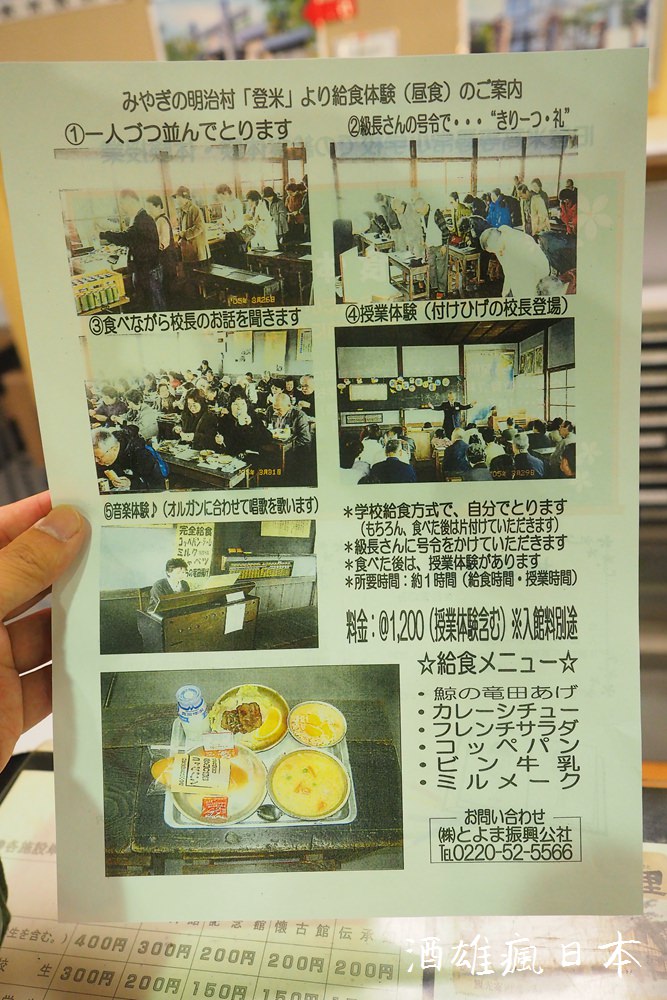 みやぎの明治村「登米」より給食体験（昼食）のご案内
①一人づつ並んでとります
②級長さんの号令で・・・“きりーつ・礼”
'05年 3月26日
③食べながら校長のお話を聞きます
④授業体験（付けひげの校長登場）
'05年 3月31日
'05年 3月29日
⑤音楽体験♪（オルガンに合わせて唱歌を歌います）
完全給食
コッペパン
ミルク
＊学校給食方式で、自分でとります
（もちろん、食べた後は片付けていただきます）
＊級長さんに号令をかけていただきます
＊食べた後は、授業体験があります
＊所要時間：約１時間（給食時間・授業時間）
料金：@1,200（授業体験含む）※入館料別途
☆給食メニュー☆
・鯨の竜田あげ
・カレーシチュー
・フレンチサラダ
・コッペパン
・ビン牛乳
・ミルメーク
お問い合わせ
㈱とよま振興公社
℡0220-52-5566
記念館 懐古館 伝承
生を含む。） 400円 300円 200円 200円 200円
校生 300円 200円 150円 150円
酒雄瘋日本